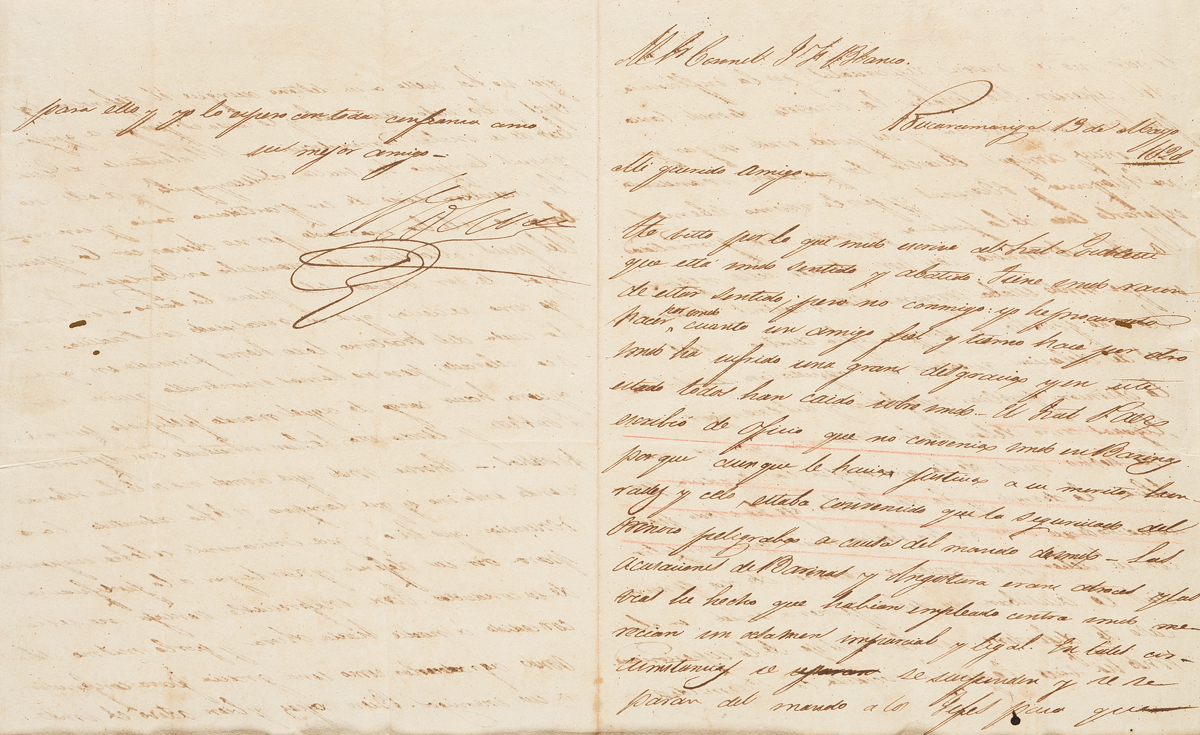 para ello y yo lo espero con toda confianza como
su mejor amigo-
Bolivar
Al Sr Coronel J. F. Blanco.
Bucaramanga 13 de Mayo
1828
Mi querido amigo.
He visto por lo que umd escrive al Gral
que está umd sentido y abatido. Tiene umd razon
de estar sentido, pero no conmigo: yo he procurado
hacer por umd cuanto un amigo fiel y tierno hace por otro
umd ha sufrido una gran desgracia y en este
estado todos han caido sobre umd.- El Gral Paez
escribió de oficio que no convenia umd en Barinas
porque aunque le hacia justicia a su merito, hon
radez y celo, estaba convencido que la seguridad del
peligraba a causa del mando de umd- Las
acusaciones de Barinas y Angostura eran atroces y las
vias de hecho que habian empleado contra umd me-
recian un examen imparcial y legal. En tales cir-
cunstancias se se suspenden y se se
paran del mando a los Jefes para que